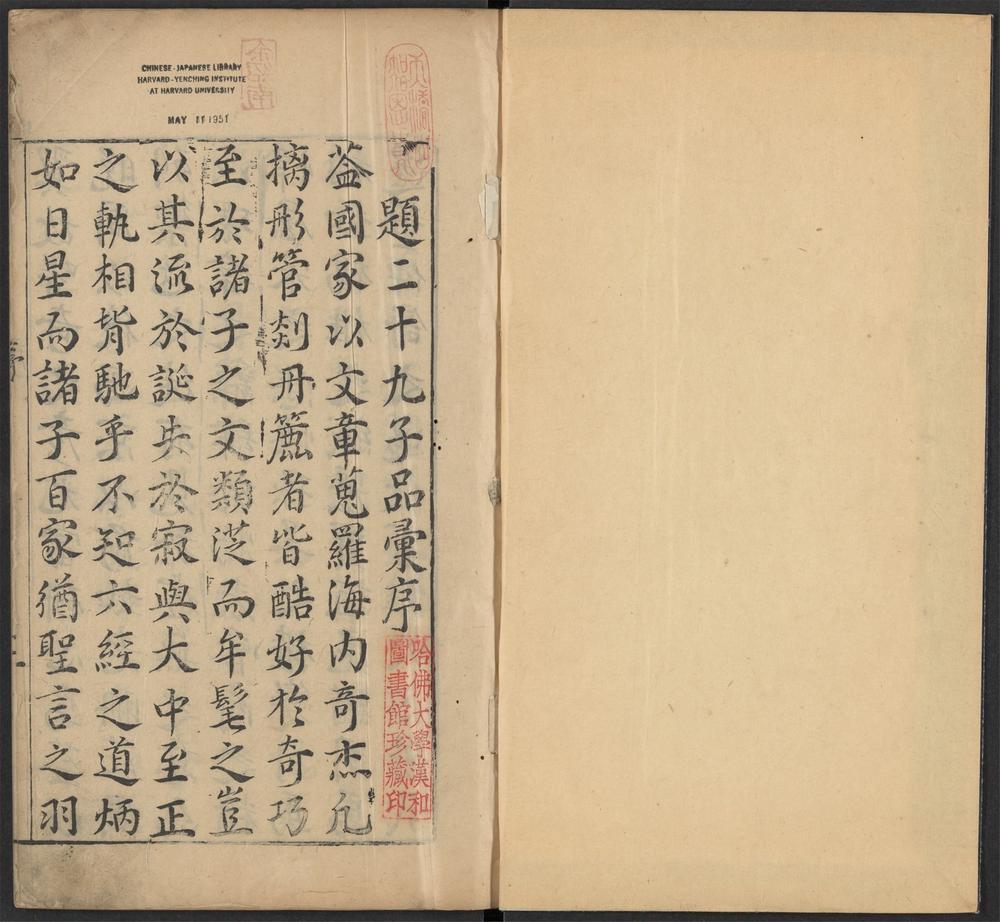 題二十九子品彙序
葢國家以文章蒐羅海内奇杰凡
摛彤管剡冊簏者皆酷好於奇巧
至於諸子之文類茫而牟髦之豈
以其流於誕失於寂與大中至正
之軌相背馳乎不知六經之道炳
如日星而諸子百家猶聖言之羽
哈佛大學漢和
圖書館珍藏印
CHINESE-JAPANESE LIBRARY
HARVARD-YENCHING INSTITUTE
AT HARVARD UNIVERSITY
MAY 11 1951